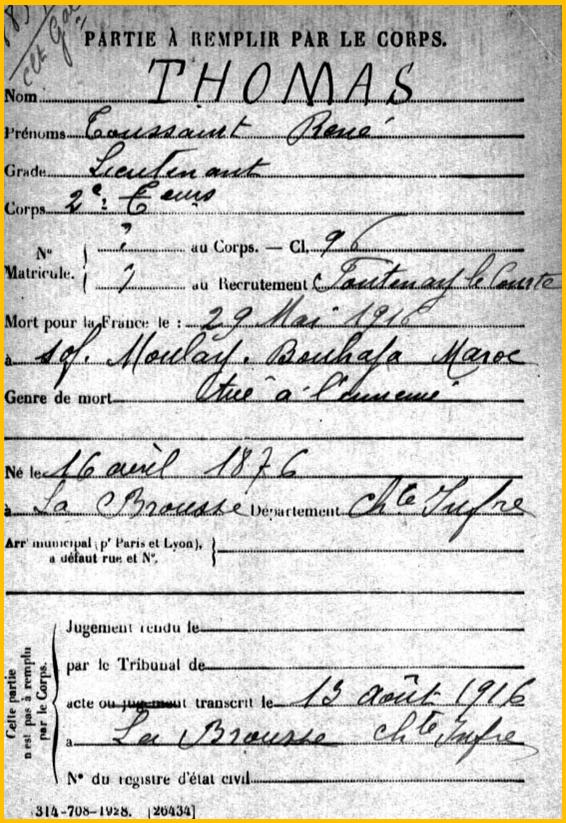 PARTIE À REMPLIR PAR LE CORPS.
Nom THOMAS
Prénoms Toussaint René
Grade Lieutenant
Corps 2e
N° Matricule. { ? au Corps. — Cl. 96
? au Recrutement Fontenay le Comte
Mort pour la France le : 29 Mai 1916
à Moulay. Bouhafa Maroc
Genre de mort tué à l'ennemi
Né le 16 avril 1876
à La Brousse Département Chte Infre
Arrt municipal (pr Paris et Lyon),
à défaut rue et N°. }
Cette partie n'est pas à remplir par le Corps.
Jugement rendu le
par le Tribunal de
acte ou jugement transcrit le 13 août 1916
à La Brousse Chte Infre
N° du registre d'état civil
314-708-1928. [26434]